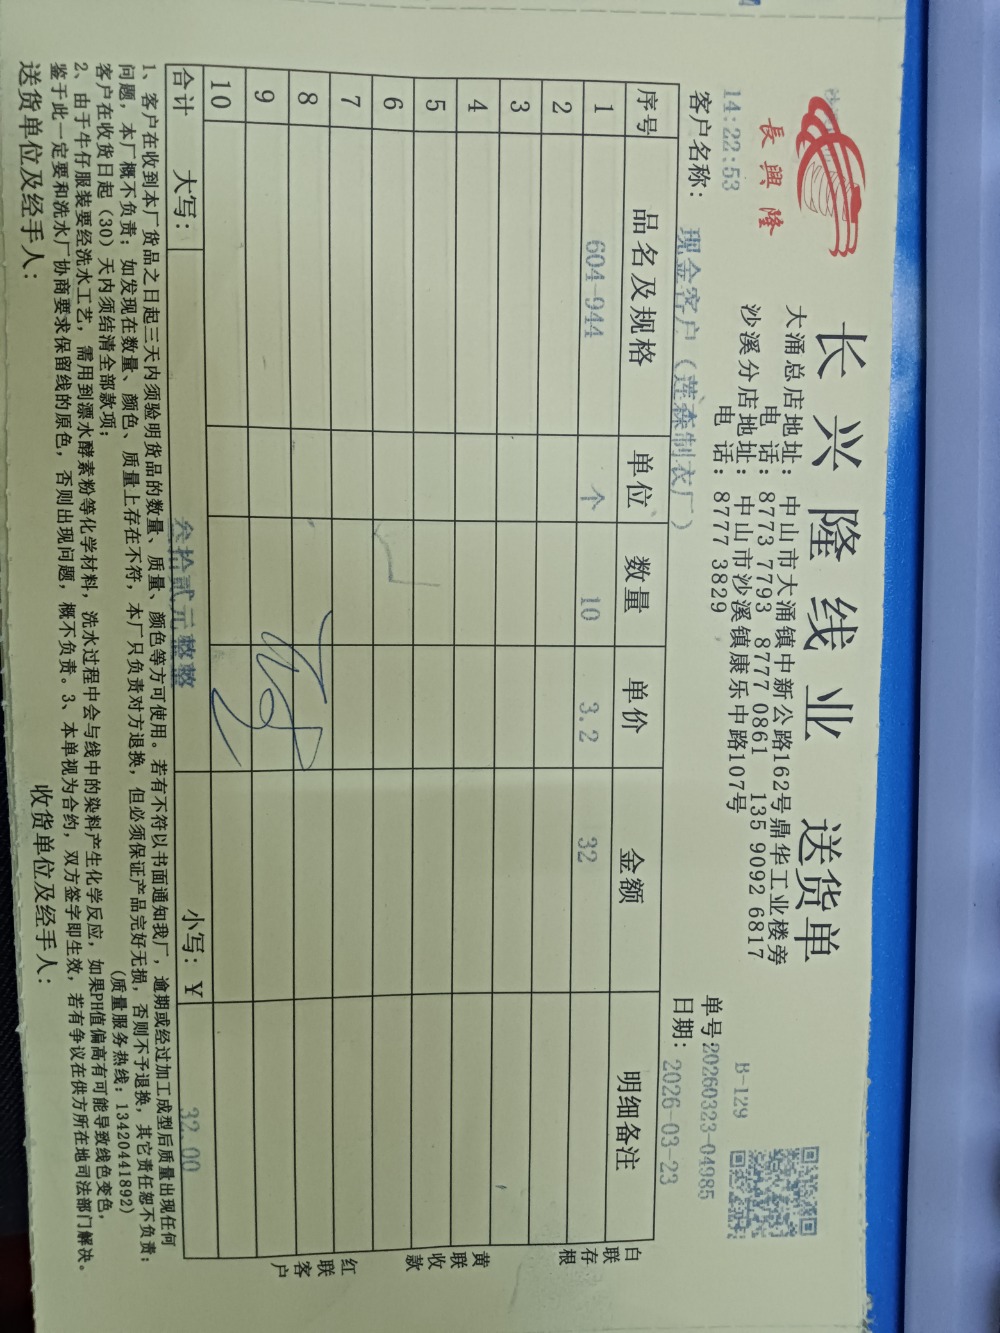 長興隆
长兴隆线业 送货单
大涌总店地址：中山市大涌镇中新公路162号鼎华工业楼旁
电 话：8773 7793 8777 0861 135 9092 6817
沙溪分店地址：中山市沙溪镇康乐中路107号
电 话：8777 3829
B-129
14:22:53
单号:20260323-04985
客户名称：现金客户（莲森制衣厂）
日期：2026-03-23
序号 品名及规格 单位 数量 单价 金额 明细备注
1 604-944 个 10 3.2 32
2
3
4
5
6
7
8
9
10
合计 大写： 叁拾贰元整整 小写：¥ 32.00
白联存根
黄联收款
红联客户
1、客户在收到本厂货品之日起三天内须验明货品的数量、质量、颜色等方可使用。若有不符以书面通知我厂，逾期或经过加工成型后质量出现任何
问题，本厂概不负责；如发现在数量、颜色、质量上存在不符，本厂只负责对方退换，但必须保证产品完好无损，否则不予退换，其它责任恕不负责；
客户在收货日起（30）天内须结清全部款项； （质量服务热线：13420441892）
2、由于牛仔服装要经洗水工艺，需用到漂水酵素粉等化学材料，洗水过程中会与线中的染料产生化学反应，如果PH值偏高有可能导致线色变色，
鉴于此一定要和洗水厂协商要求保留线的原色，否则出现问题，概不负责。3、本单视为合约，双方签字即生效，若有争议在供方所在地司法部门解决。
送货单位及经手人： 收货单位及经手人：